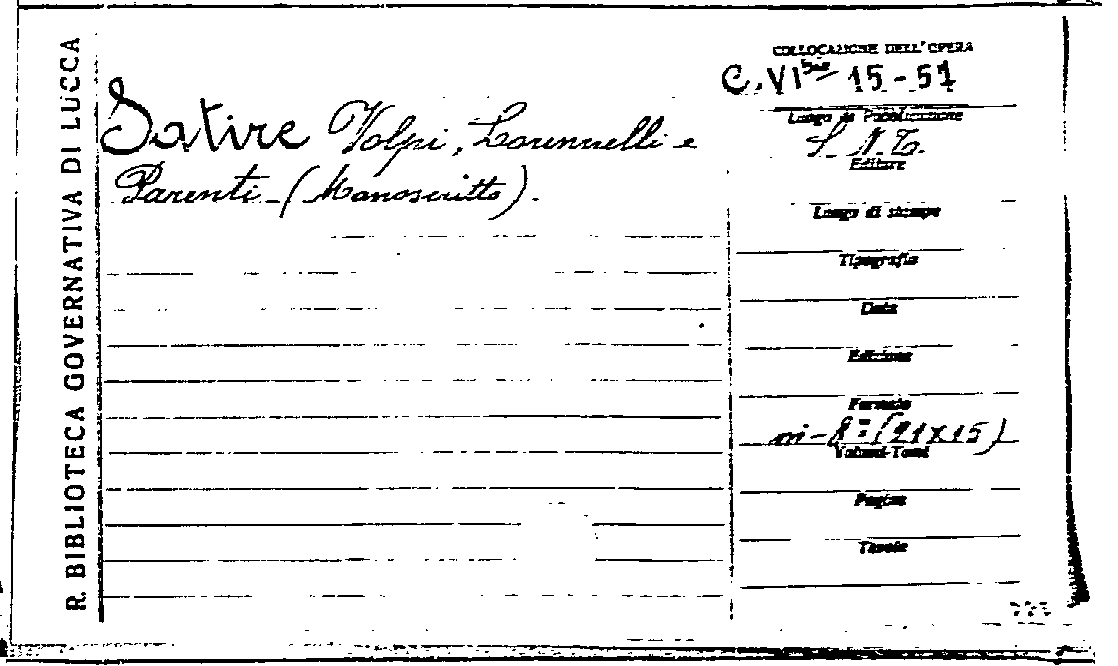 R. BIBLIOTECA GOVERNATIVA DI LUCCA
Satire Volpi, e
Parenti - (Manoscritto).
COLLOCAZIONE DELL'OPERA
C. VI bis 15-57
Luogo di Pubblicazione
S. N. T.
Editore
Luogo di stampa
Tipografia
Data
Edizione
Formato
in-8° (21x15)
Volumi-Tomi
Pagine
Tavole